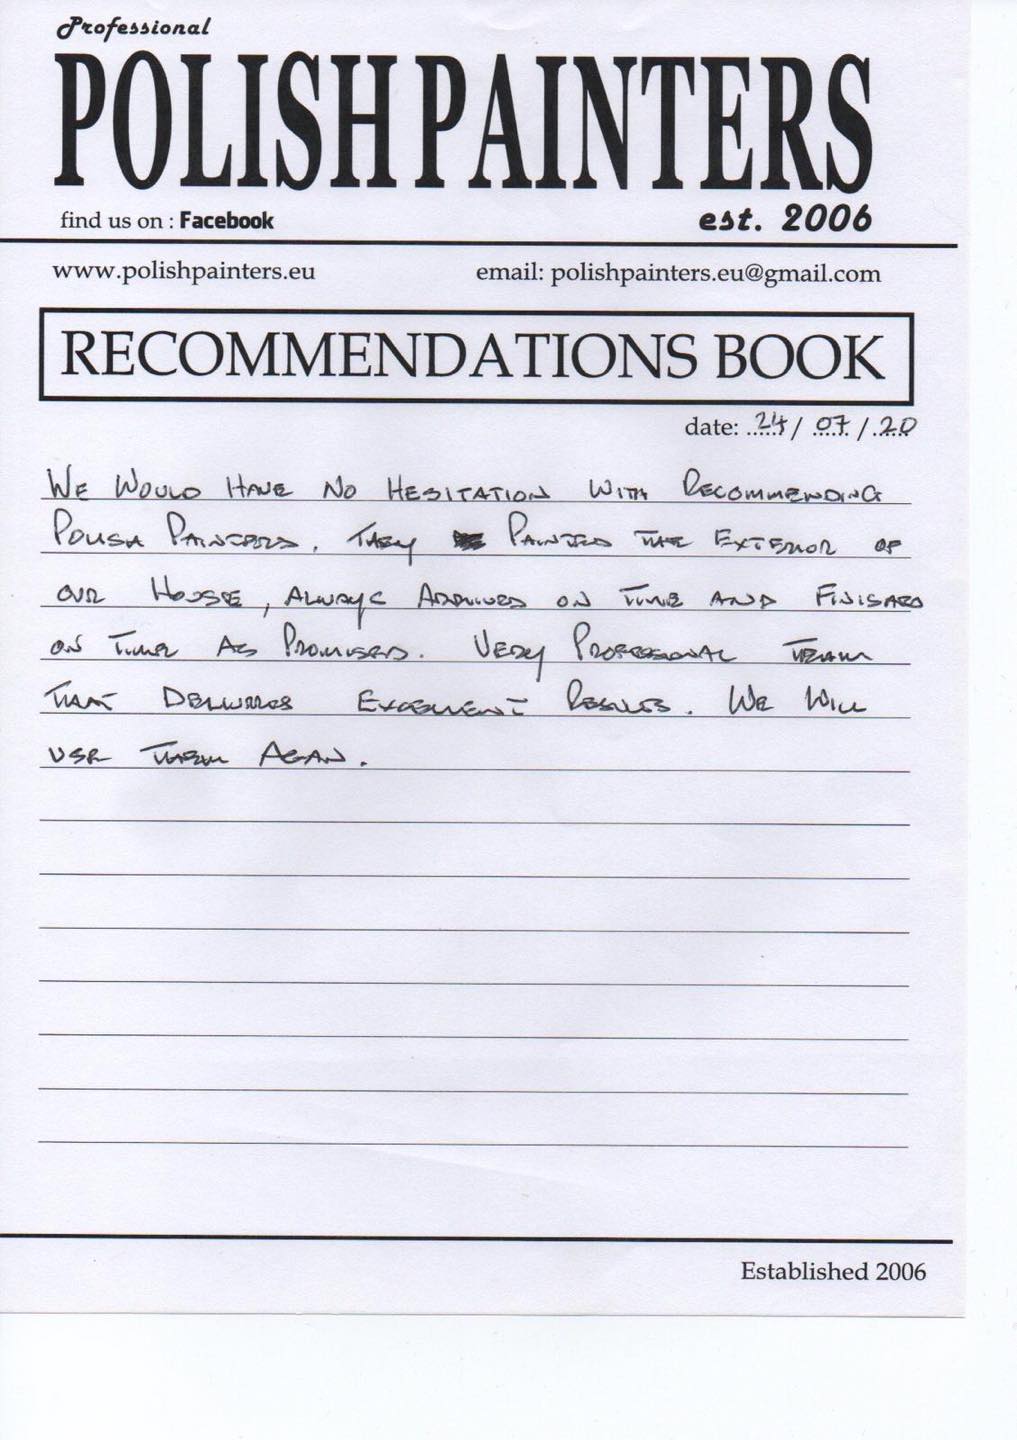 Professional
POLISH PAINTERS
find us on : Facebook
est. 2006
www.polishpainters.eu
email: polishpainters.eu@gmail.com
RECOMMENDATIONS BOOK
date: 24/ 07 / 20
WE WOULD HAVE NO HESITATION WITH RECOMMENDING
POLISH PAINTERS. THEY PAINTED THE EXTERIOR OF
OUR HOUSE, ALWAYS ARRIVED ON TIME AND FINISHED
ON TIME AS PROMISED. VERY PROFESSIONAL TEAM
THAT DELIVERED EXCELLENT RESULTS. WE WILL
USE THEM AGAIN.
Established 2006